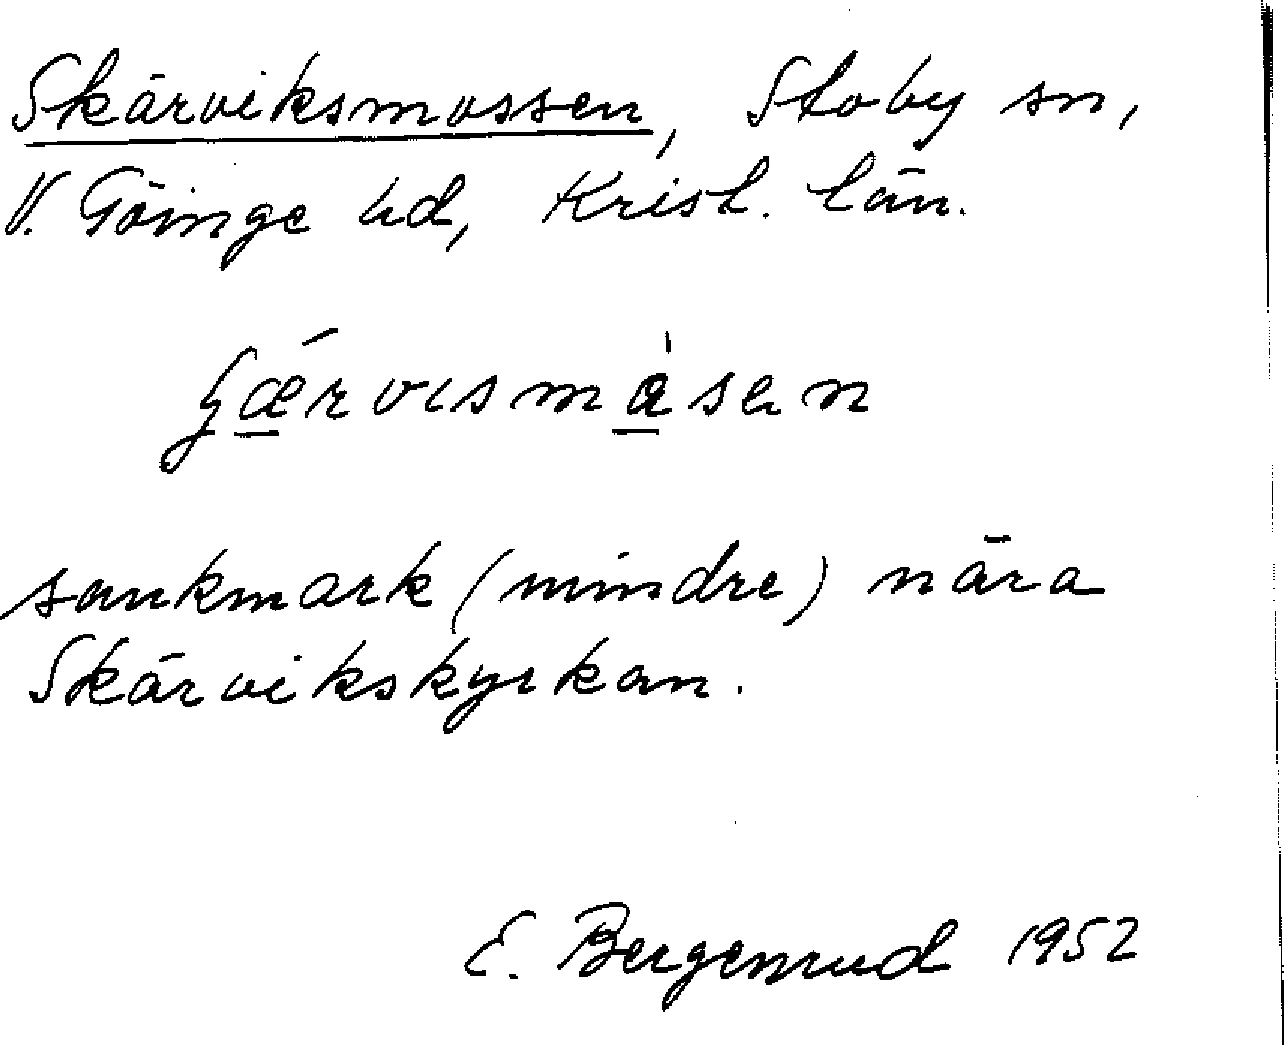 Skärviksmossen, Stoby sn,
V. Göinge hd, Krist. län.
sankmark (mindre) nära
Skärvikskyrkan.
E. Bergenrud 1952